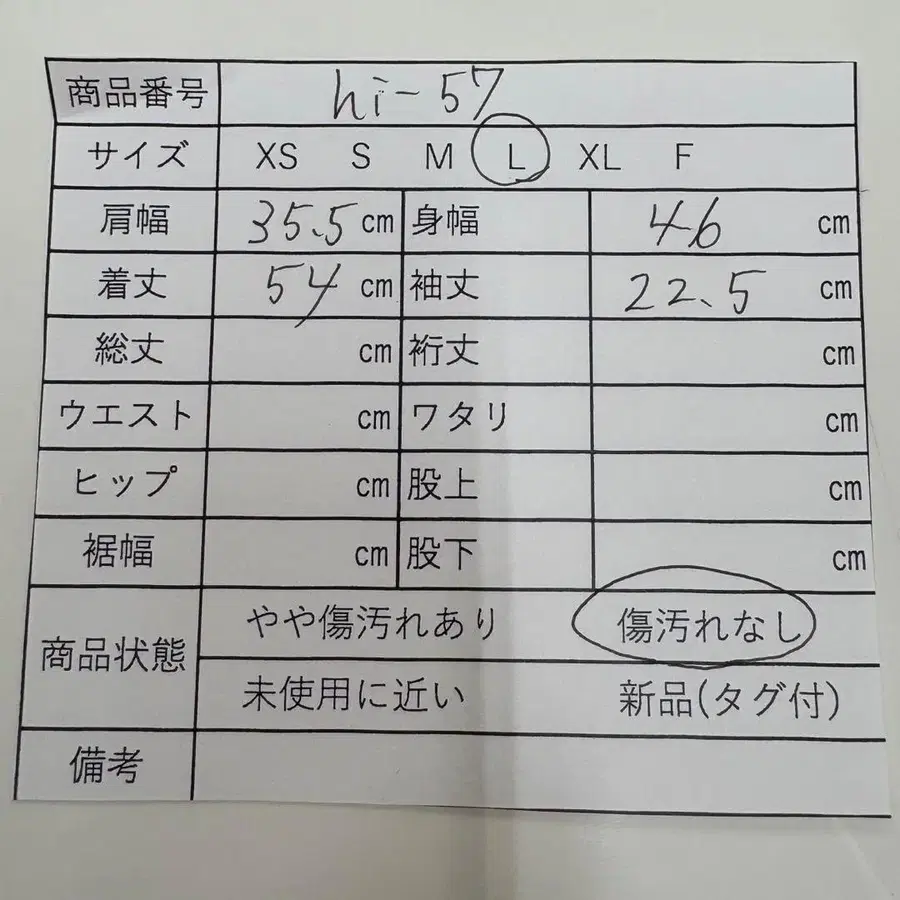 商品番号 hi-57
サイズ XS S M L XL F
肩幅 35.5 cm 身幅 46 cm
着丈 54 cm 袖丈 22.5 cm
総丈 cm 裄丈 cm
ウエスト cm ワタリ cm
ヒップ cm 股上 cm
裾幅 cm 股下 cm
商品状態 やや傷汚れあり 傷汚れなし
未使用に近い 新品(タグ付)
備考